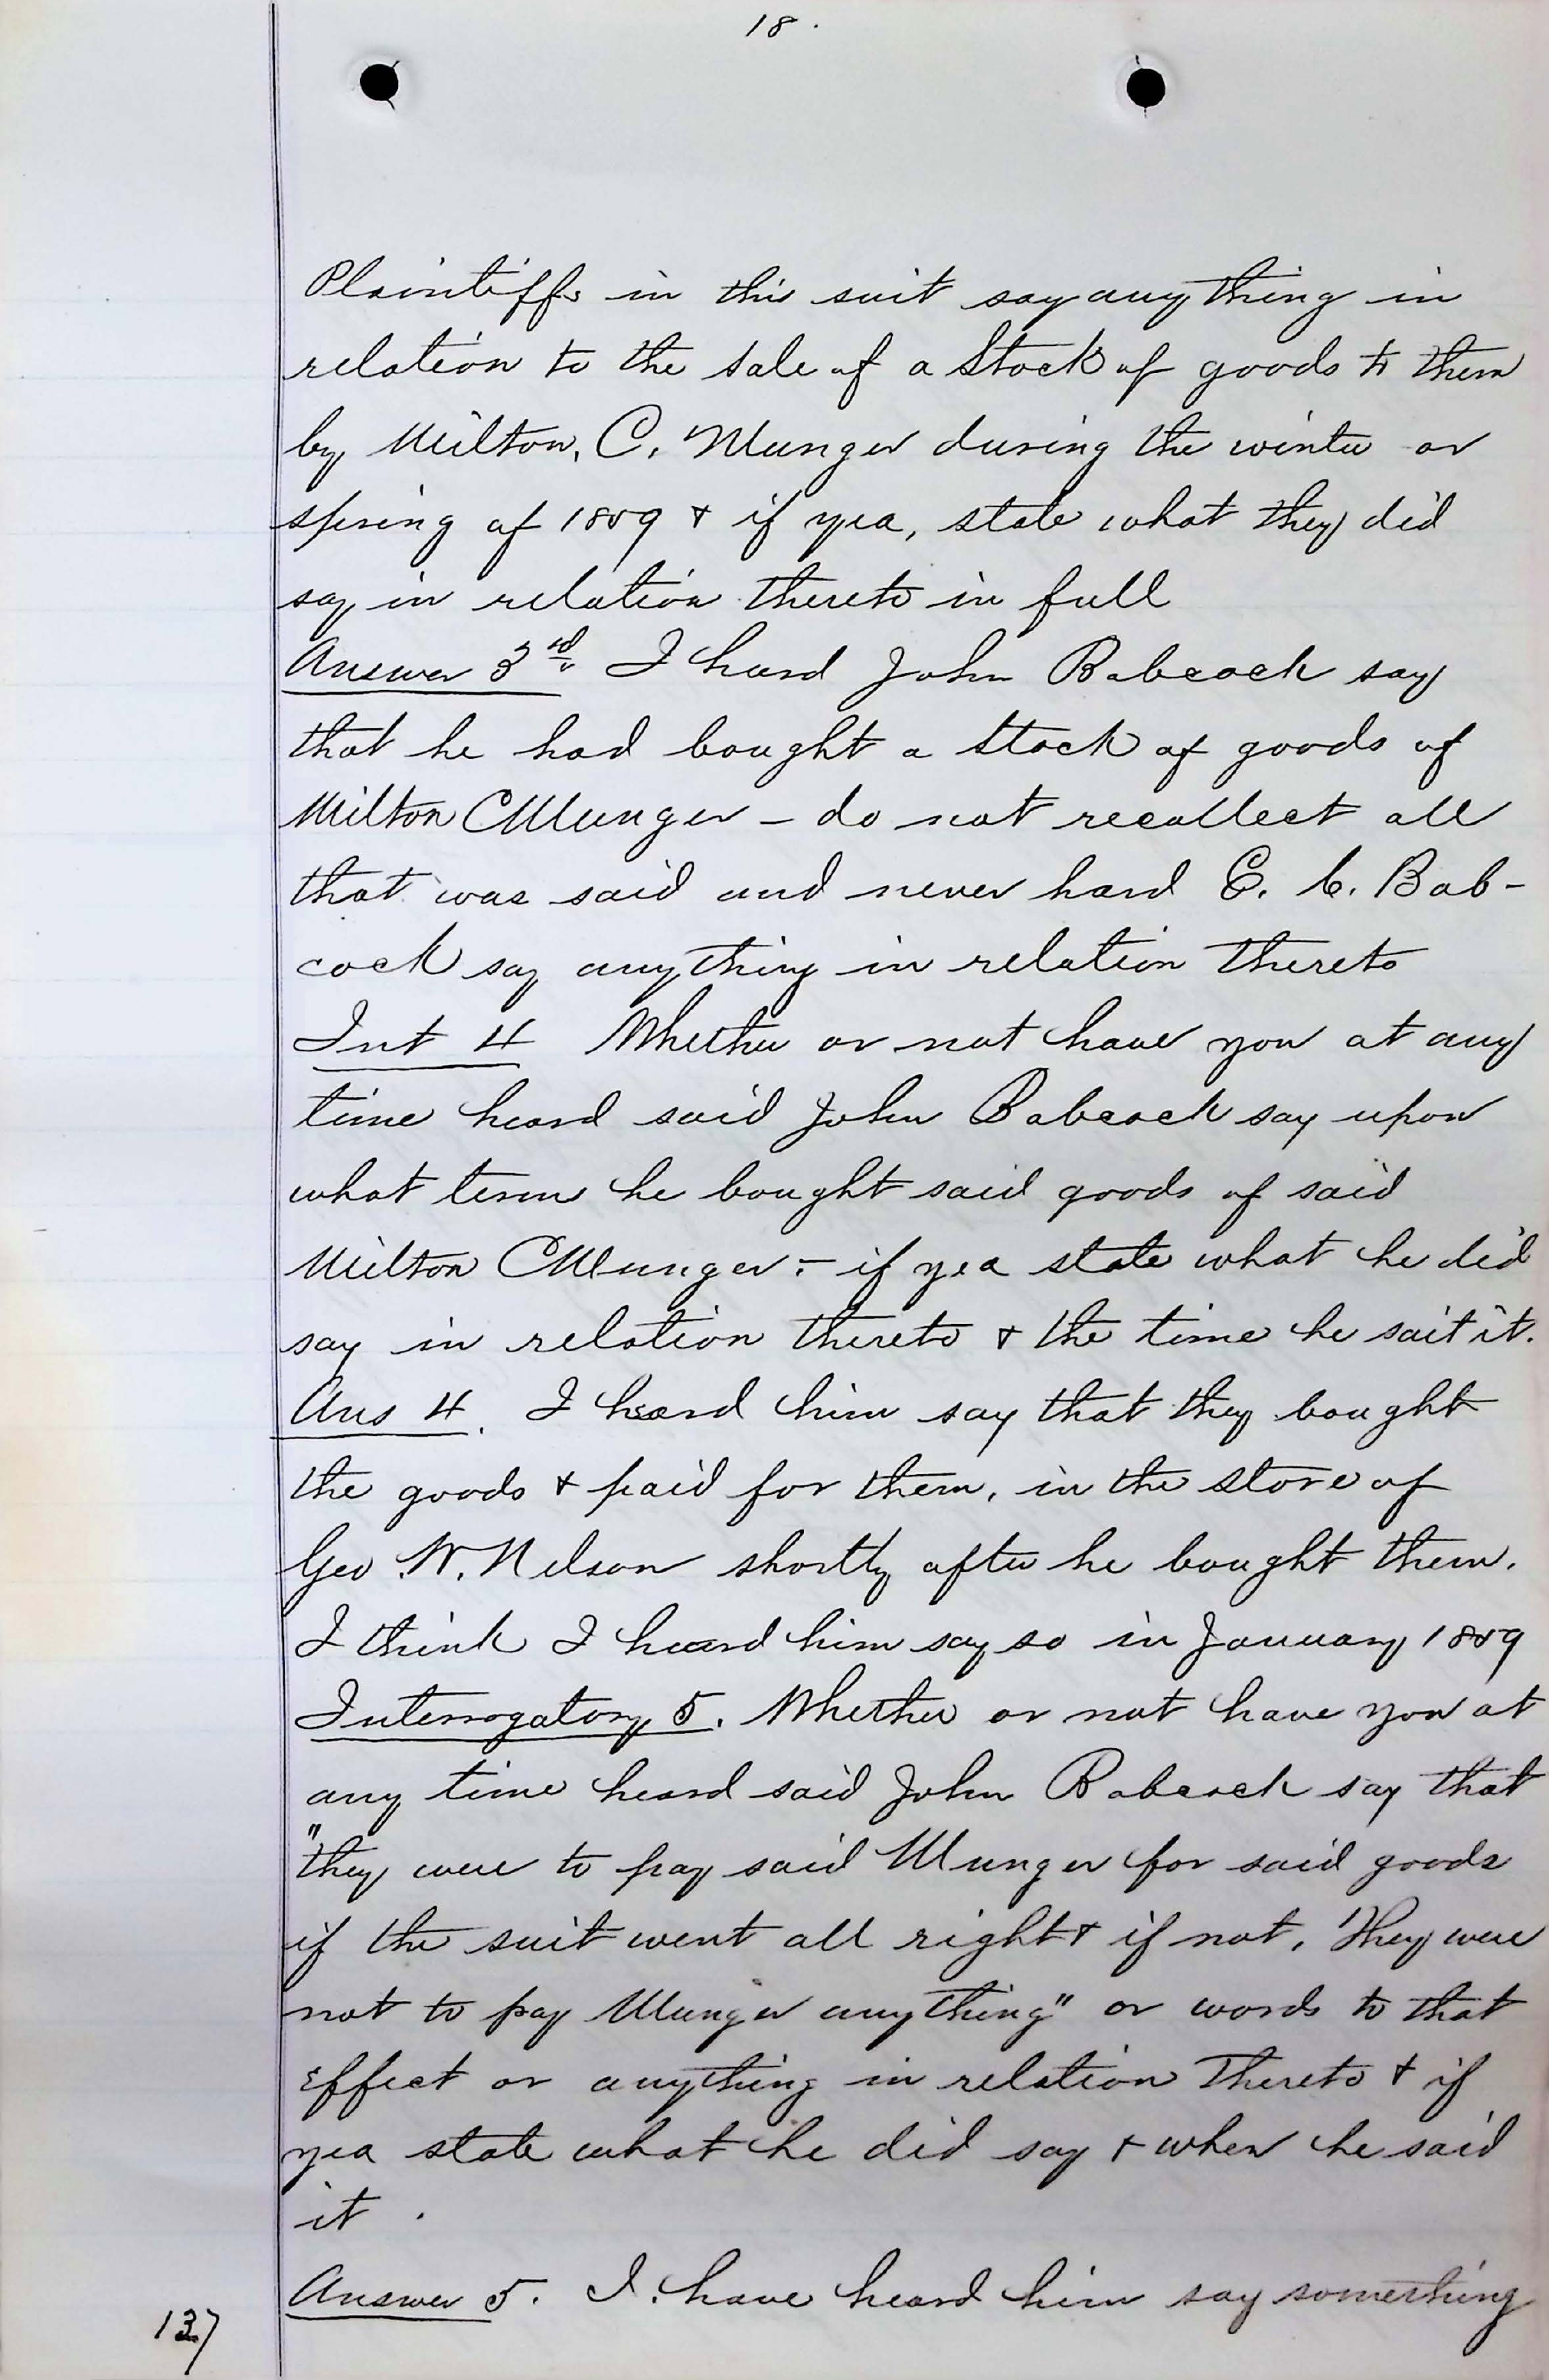 18.
Plaintiffs in this suit say anything in
relation to the sale of a Stock of goods to them
by Milton, C. Munger during the winter or
spring of 1859 & if yea, state what they did
say in relation thereto in full
Answer 3rd. I heard John Babcock say
that he had bought a Stock of goods of
Milton C Munger - do not recollect all
that was said and never hard E. C. Bab-
cock say anything in relation thereto
Int 4 Whether or not have you at any
time heard said John Babcock say upon
what terms he bought said goods of said
Milton C Munger - if yea state what he did
say in relation thereto & the time he sait it.
Ans 4. I heard him say that they bought
the goods & paid for them, in the store of
Geo. W. Nelson shortly after he bought them.
I think I heard him say so in January 1859
Interrogatory 5. Whether or not have you at
any time heard said John Babcock say that
"they were to pay said Munger for said goods
if the suit went all right & if not, they were
not to pay Munger anything" or words to that
effect or anything in relation thereto & if
yea state what he did say & when he said
it.
Answer 5. I have heard him say something
137